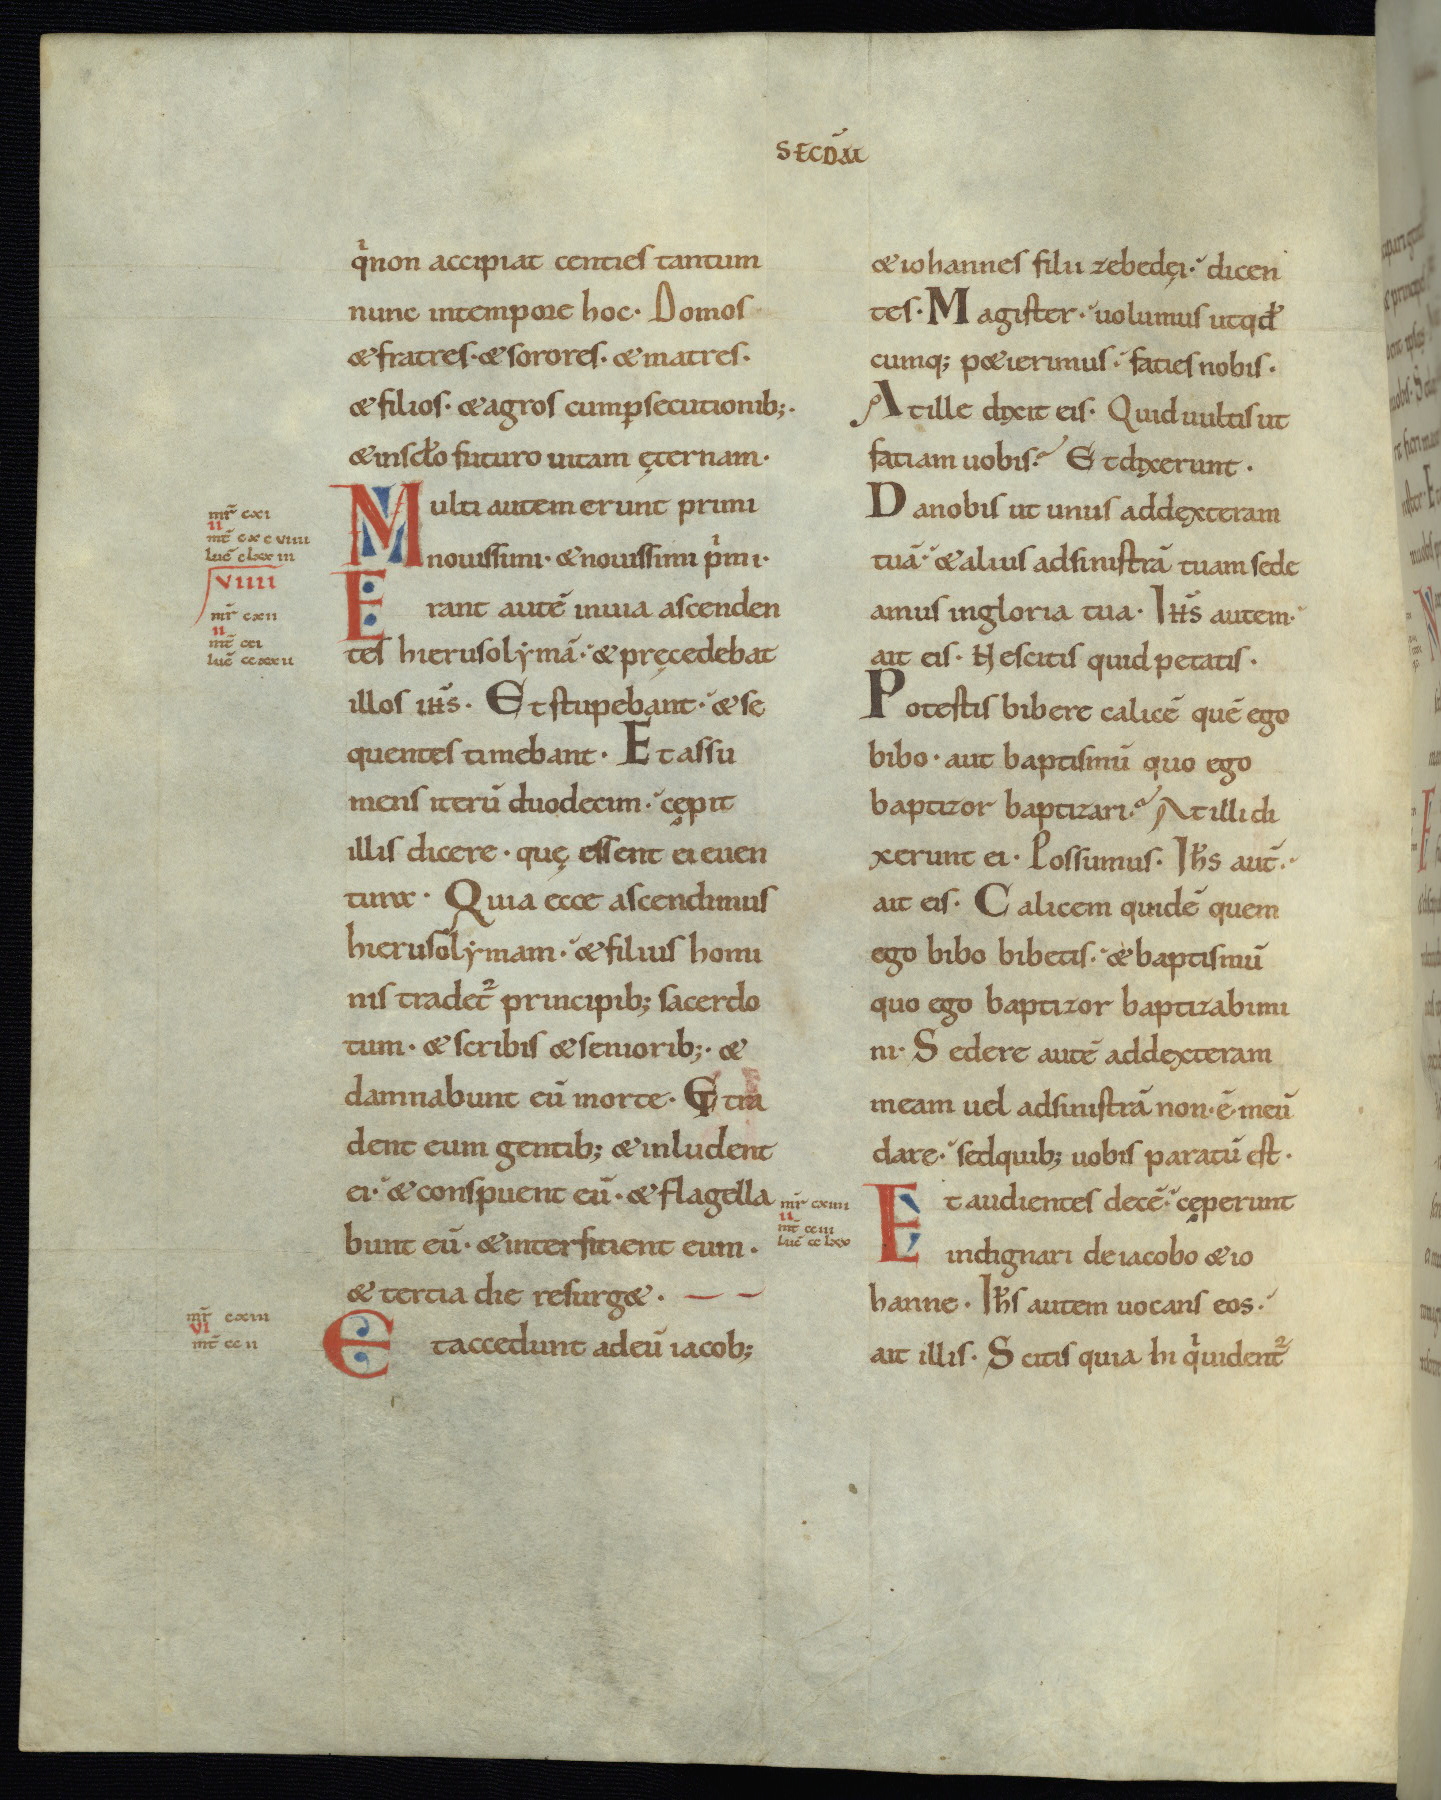 SECDM̄
qͥ non accipiat centies tantum
nunc intempore hoc· Domos
& fratres· & sorores· & matres·
& filios· & agros cumꝑsecutionib;·
& insclo futuro uitam ęternam·
Multi autem erunt primi
nouissimi· & nouissimi pͥmi·
Erant autē inuia ascenden
tes hierusolẏmā· & pręcedebat
illos ihs̄· Et stupebant· & se
quentes timebant· Et assu
mens iterū duodecim· cępit
illis dicere· quę essent ei euen
tura· Quia ecce ascendimus
hierusolẏmam· & filius homi
nis tradet᷑ principib; sacerdo
tum· & scribis & seniorib;· &
damnabunt eū morte· Et tra
dent eum gentib; & inludent
ei· & conspuent eū· & flagella
bunt eū· & interfitient eum·
& tertia die resurg&·
Et accedunt adeū iacob;
mr̄ cxi
ii
mt̄ cxcviiii
luc̄ clxxiii
VIIII
mr̄ cxii
ii
mt̄ cci
luc̄ ccxxii
mr̄ cxiii
vi
mt̄ ccii
& iohannes filii zebedęi· dicen
tes· Magister· uolumus utqd̄
cumq; p&ierimus· faties nobis·
At ille dixit eis· Quid uultis ut
fatiam uobis? Et dixerunt·
Da nobis ut unus addexteram
tuā· & alius adsinistrā tuam sede
amus ingloria tua· Ihs̄ autem·
ait eis· Nescitis quid petatis·
Potestis bibere calicē quē ego
bibo· aut baptismū quo ego
baptizor baptizari? At illi di
xerunt ei· Possumus· Ihs̄ aut̄·
ait eis· Calicem quidē quem
ego bibo bibetis· & baptismū
quo ego baptizor baptizabimi
ni· Sedere autē addexteram
meam uel adsinistrā non·ē· meū
dare· sedquib; uobis paratū est·
Et audientes decē· cęperunt
indignari de iacobo & io
hanne· Ihs̄ autem uocans eos·
ait illis· Scitis quia hi qͥ uident᷑
mr̄ cxiiii
ii
mt̄ cciii
luc̄ cclxx